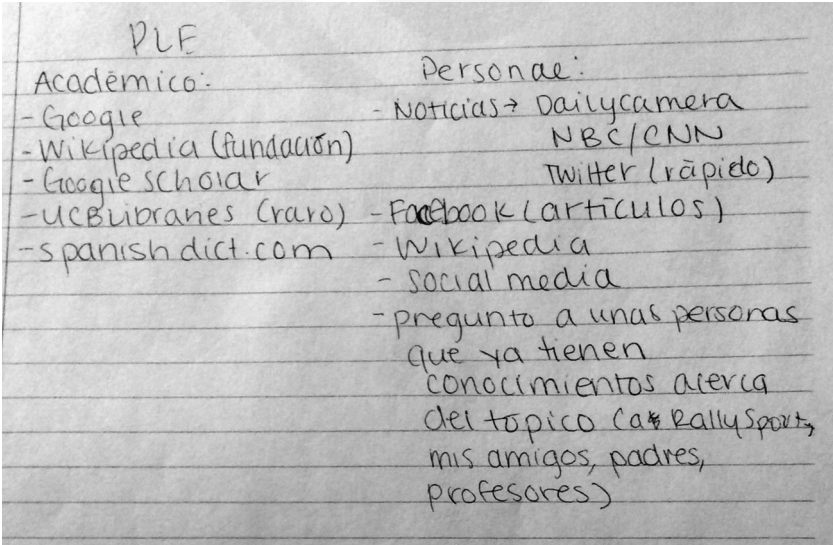 PLE
Académico:
- Google
- Wikipedia (fundación)
- Google scholar
- UCB libraries (raro)
- spanishdict.com
Personal:
- Noticias → Dailycamera
NBC/CNN
Twitter (rápido)
- Facebook (artículos)
- Wikipedia
- social media
- pregunto a unas personas
que ya tienen
conocimientos acerca
del topico (a RallySport,
mis amigos, padres,
profesores)